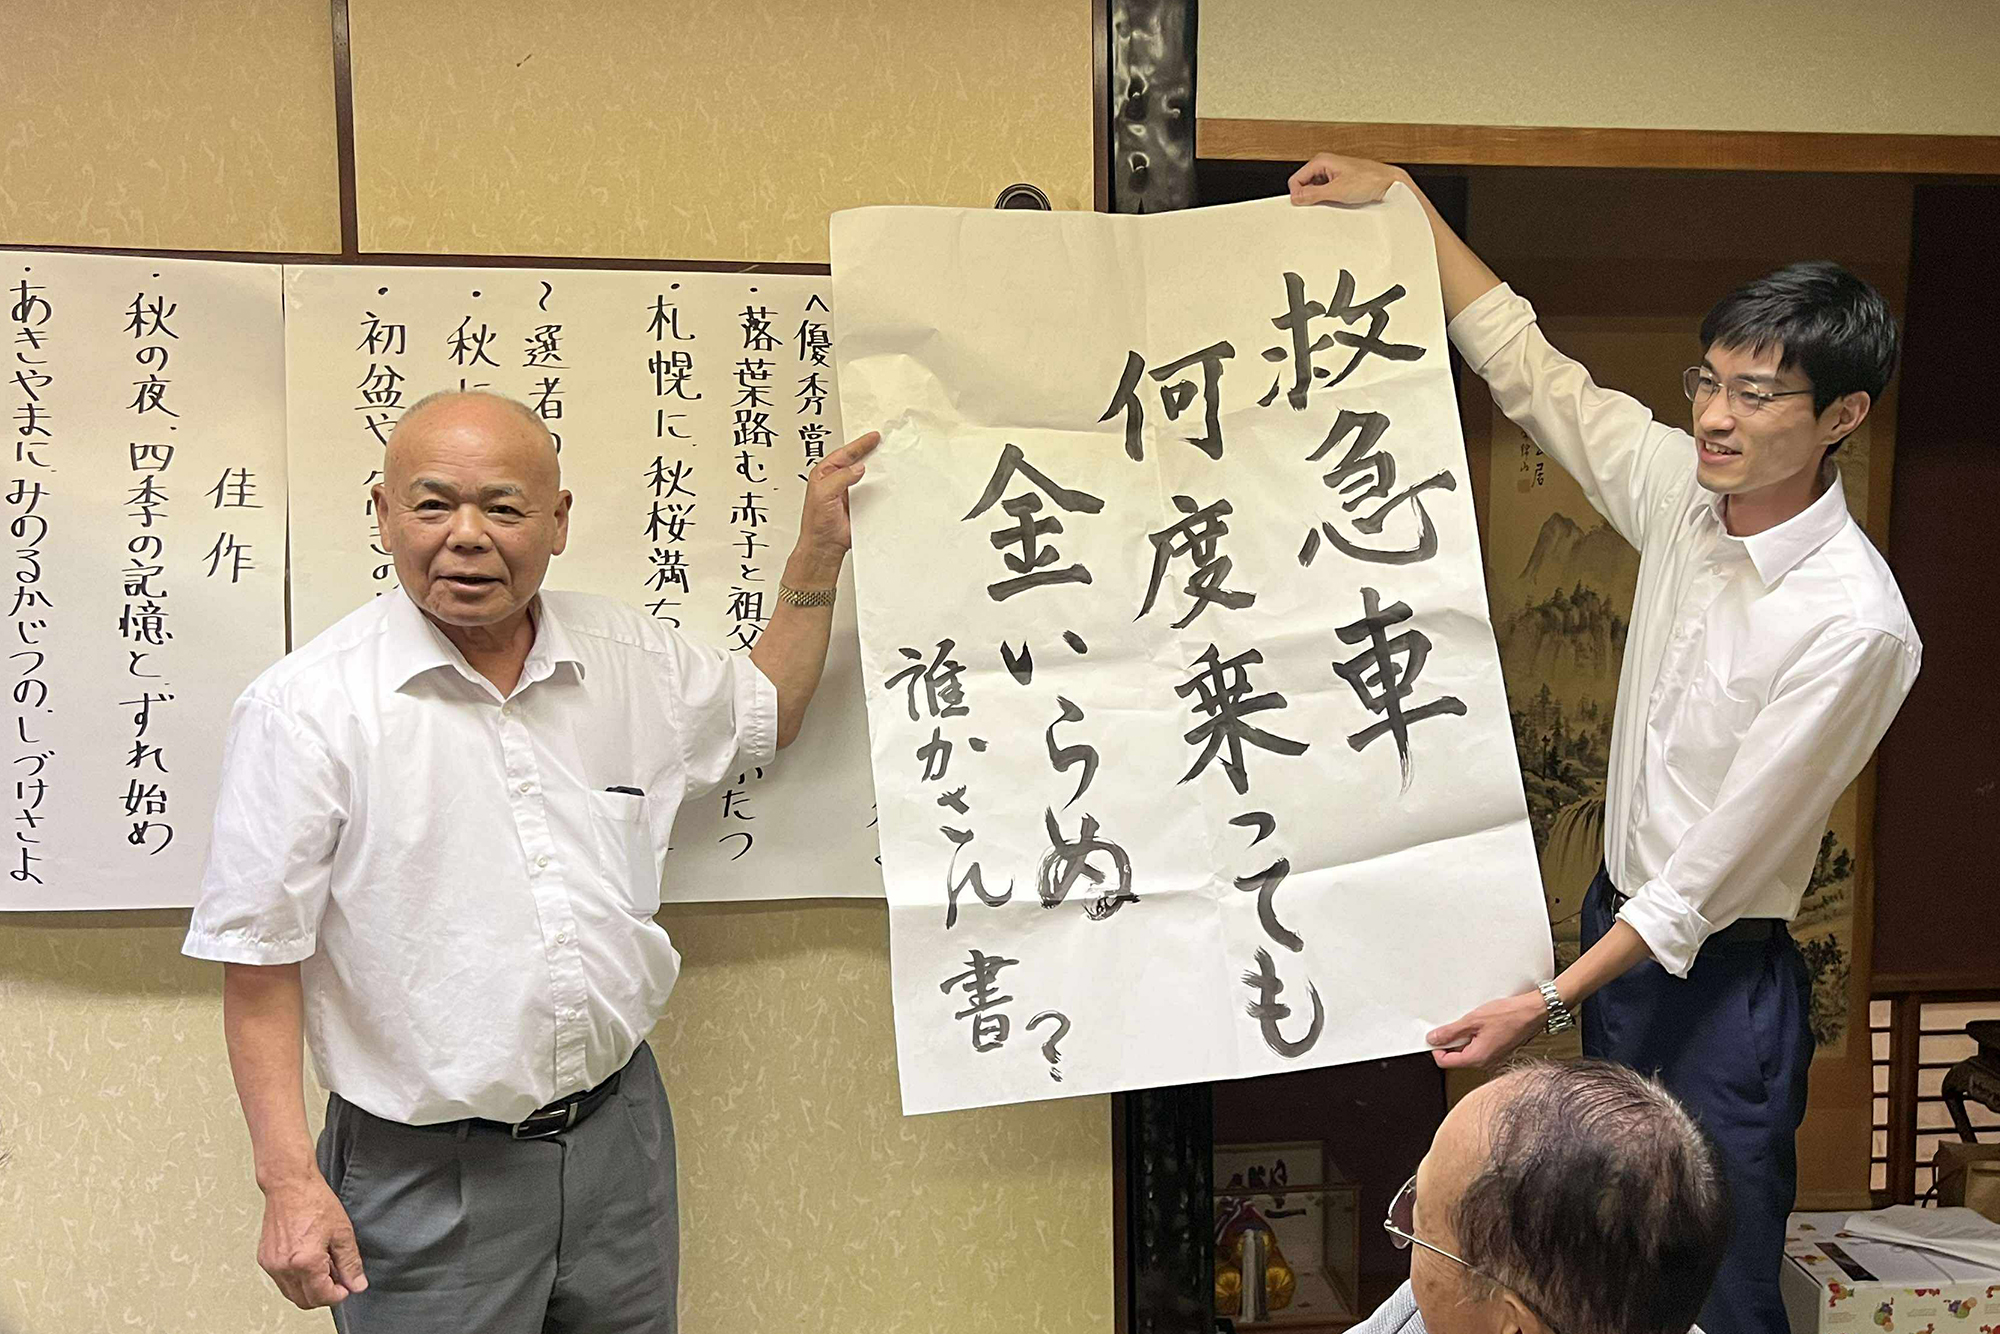 救急車
何度乗っても
金いらぬ
誰かさん書?
<優秀賞>
・落葉路む、赤子と祖父
かたつ
・札幌に、秋桜満ち
〜選者の
・秋に
・初盆や
佳作
・秋の夜、四季の記憶と、ずれ始め
・あきやまに、みのるかじつの、しづけさよ